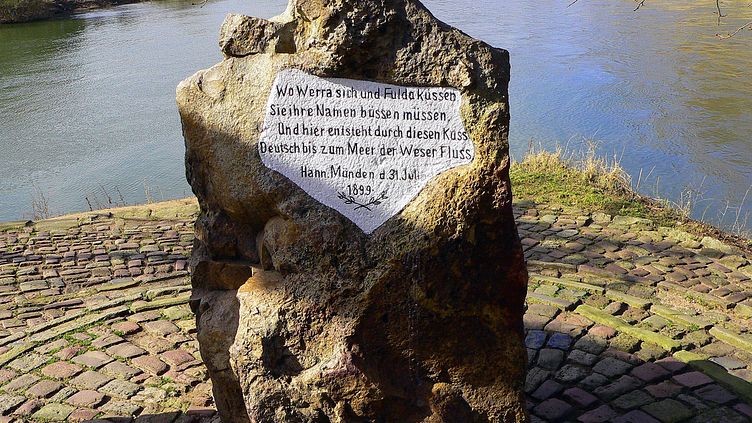 Wo Werra sich und Fulda küssen
Sie ihre Namen büssen müssen,
Und hier entsteht durch diesen Kuss
Deutsch bis zum Meer der Weser Fluss.
Hann. Münden d. 31. Juli
1899.